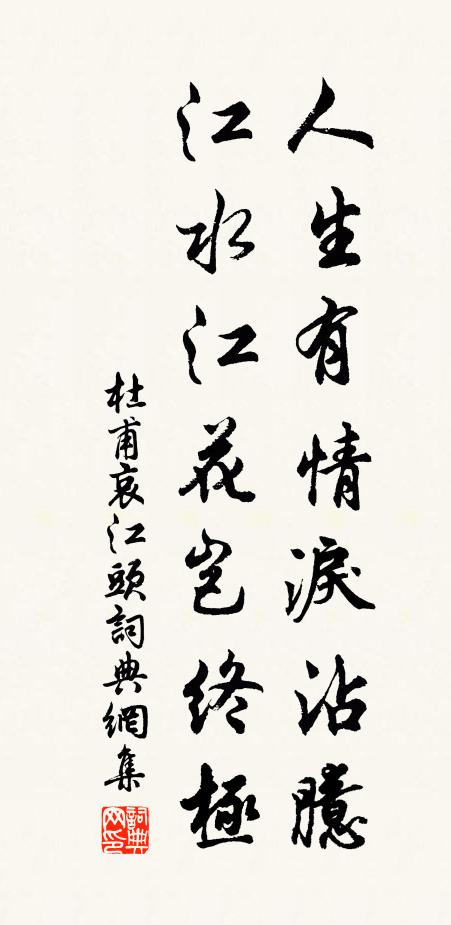 人生有情淚沾臆
江水江花豈終極
杜甫哀江頭詞典網集
詞典網印